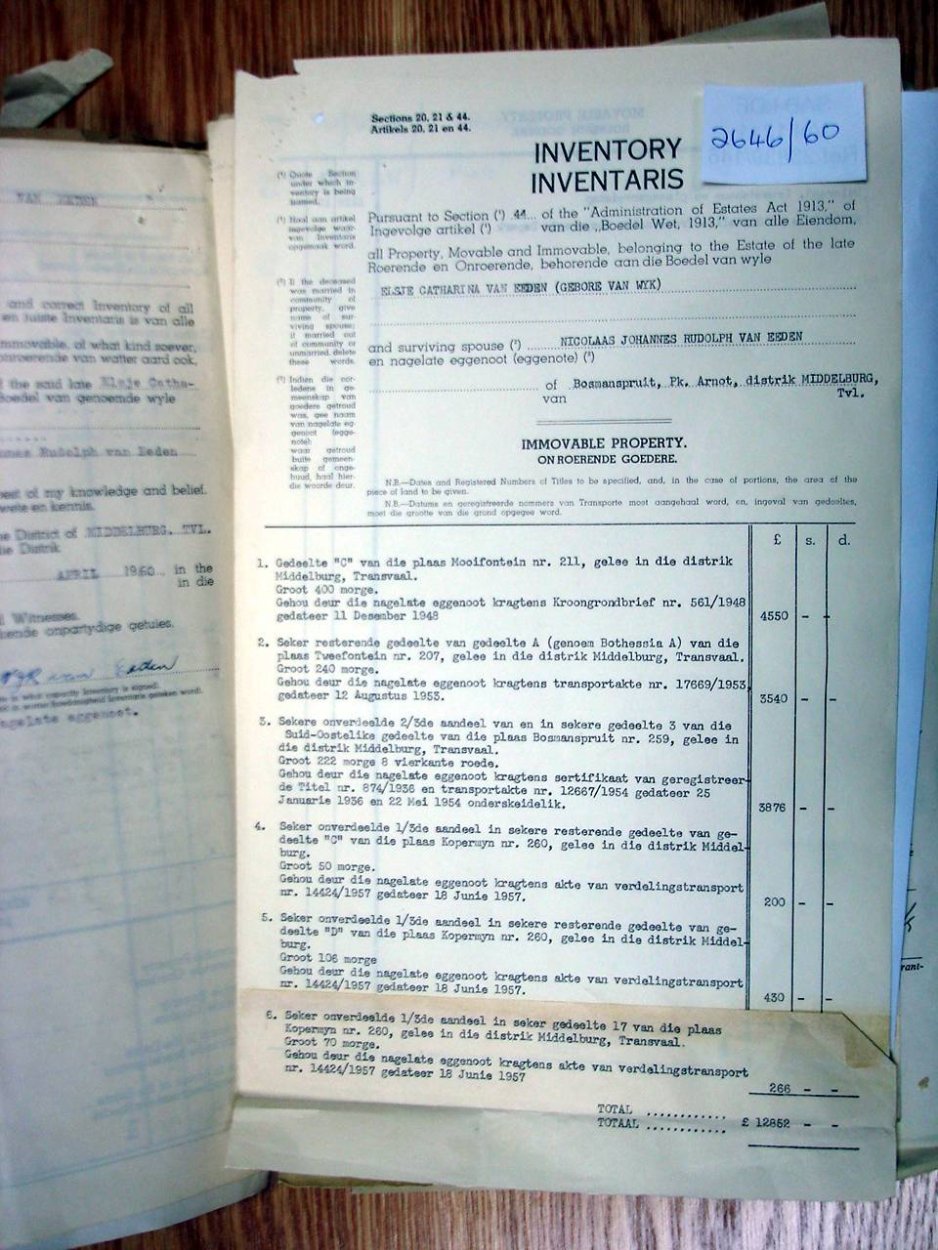 VAN EEDEN
and correct Inventory of all
en juiste Inventaris is van alle
immovable, of what kind soever,
onroerende van watter aard ook,
the said late Elsje Catha-
Boedel van genoemde wyle
Rudolph van Eeden
best of my knowledge and belief.
wete en kennis.
District of MIDDELBURG, TVL.
die Distrik
APRIL 1960 in the
in die
Witnesses.
onpartydige getuies.
van Eeden
in what capacity Inventory is signed.
nagelate eggenoot.
Sections 20, 21 & 44.
Artikels 20, 21 en 44.
2646/60
INVENTORY
INVENTARIS
(¹) Quote Section
under which in-
ventory is being
named.
(¹) Haal aan artikel
ingevolge waar-
van Inventaris
opgemaak word.
Pursuant to Section (¹) 44... of the "Administration of Estates Act 1913," of
Ingevolge artikel (¹) van die „Boedel Wet, 1913," van alle Eiendom,
all Property, Movable and Immovable, belonging to the Estate of the late
Roerende en Onroerende, behorende aan die Boedel van wyle
ELSJE CATHARINA VAN EEDEN (GEBORE VAN WYK)
(²) If the deceased
was married in
community of
property, give
name of sur-
viving spouse;
if married out
of community or
unmarried, delete
these words.
and surviving spouse (²) NICOLAAS JOHANNES RUDOLPH VAN EEDEN
en nagelate eggenoot (eggenote) (²)
(²) Indien die oor-
ledene in ge-
meenskap van
goedere getroud
was, gee naam
van nagelate eg-
genoot (egge-
note)
waar getroud
buite gemeen-
skap of onge-
huud, haal hier-
die woorde deur.
of Bosmanspruit, Pk. Arnot, distrik MIDDELBURG,
van Tvl.
IMMOVABLE PROPERTY.
ONROERENDE GOEDERE.
N.B.—Dates and Registered Numbers of Titles to be specified, and, in the case of portions, the area of the
piece of land to be given.
N.B.—Datums en geregistreerde nommers van Transporte moet aangehaal word, en, ingeval van gedeeltes,
moet die grootte van die grond opgegee word.
£ s. d.
1. Gedeelte "C" van die plaas Mooifontein nr. 211, gelee in die distrik
Middelburg, Transvaal.
Groot 400 morge.
Gehou deur die nagelate eggenoot kragtens Kroongrondbrief nr. 561/1948
gedateer 11 Desember 1948 4550 - -
2. Seker resterende gedeelte van gedeelte A (genoem Bothessia A) van die
plaas Tweefontein nr. 207, gelee in die distrik Middelburg, Transvaal.
Groot 240 morge.
Gehou deur die nagelate eggenoot kragtens transportakte nr. 17669/1953
gedateer 12 Augustus 1953. 3540 - -
3. Sekere onverdeelde 2/3de aandeel van en in sekere gedeelte 3 van die
Suid-Oostelike gedeelte van die plaas Bosmanspruit nr. 259, gelee in
die distrik Middelburg, Transvaal.
Groot 222 morge 8 vierkante roede.
Gehou deur die nagelate eggenoot kragtens sertifikaat van geregistreer-
de Titel nr. 874/1936 en transportakte nr. 12667/1954 gedateer 25
Januarie 1936 en 22 Mei 1954 onderskeidelik. 3876 - -
4. Seker onverdeelde 1/3de aandeel in sekere resterende gedeelte van ge-
deelte "C" van die plaas Kopermyn nr. 260, gelee in die distrik Middel-
burg.
Groot 50 morge.
Gehou deur die nagelate eggenoot kragtens akte van verdelingstransport
nr. 14424/1957 gedateer 18 Junie 1957. 200 - -
5. Seker onverdeelde 1/3de aandeel in sekere resterende gedeelte van ge-
deelte "D" van die plaas Kopermyn nr. 260, gelee in die distrik Middel-
burg.
Groot 106 morge
Gehou deur die nagelate eggenoot kragtens akte van verdelingstransport
nr. 14424/1957 gedateer 18 Junie 1957. 430 - -
6. Seker onverdeelde 1/3de aandeel in seker gedeelte 17 van die plaas
Kopermyn nr. 260, gelee in die distrik Middelburg, Transvaal.
Groot 70 morge.
Gehou deur die nagelate eggenoot kragtens akte van verdelingstransport
nr. 14424/1957 gedateer 18 Junie 1957 266 - -
TOTAL ............
TOTAAL ............ £ 12862 - -